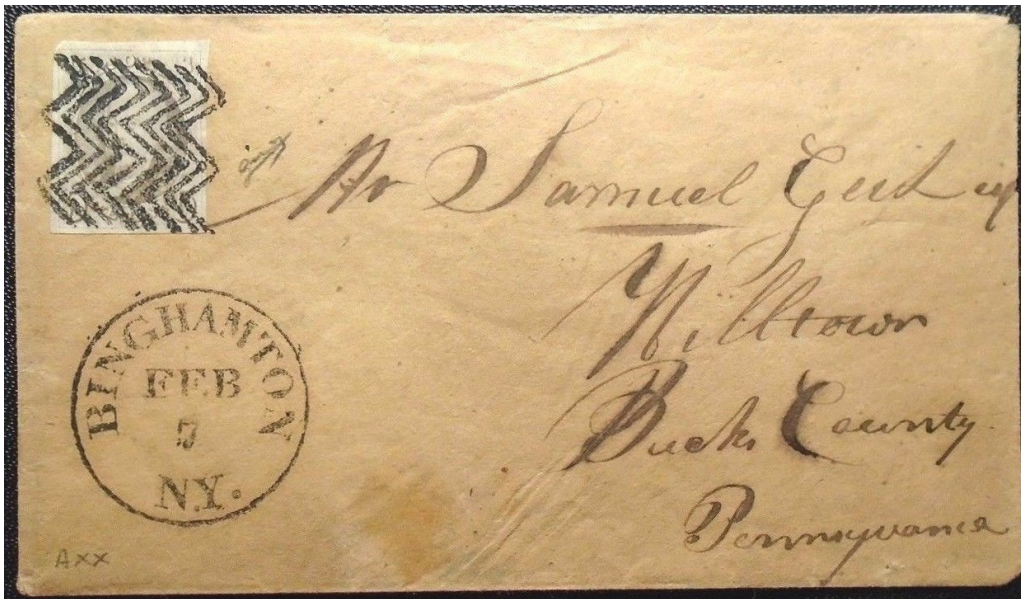 Mr Samuel
Milltown
Bucks County
Pennsyvania
BINGHAMTON
FEB
7
N.Y.
AXX